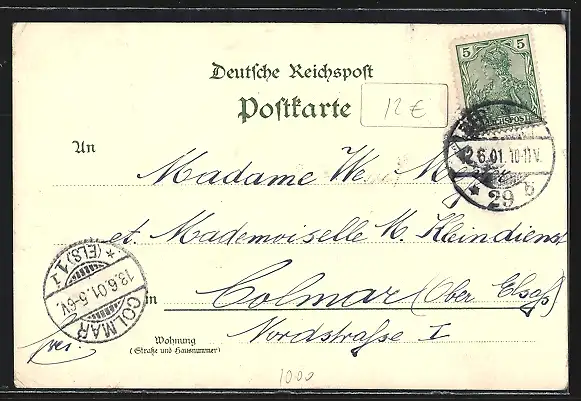 Deutsche Reichspost
Postkarte
12 €
5 5
REICHSPOST
12.6.01. 10-11V.
* 29 b
An
Madame We. M
et. Mademoiselle M. Kleindienst
in Colmar (Ober Elsaß)
Nordstraße I
frei.
Wohnung
(Straße und Hausnummer)
COLMAR
13.6.01. 5-6V.
* (ELS) 1 r
1000